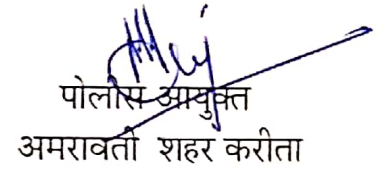 पोलीस आयुक्त
अमरावती शहर करीता